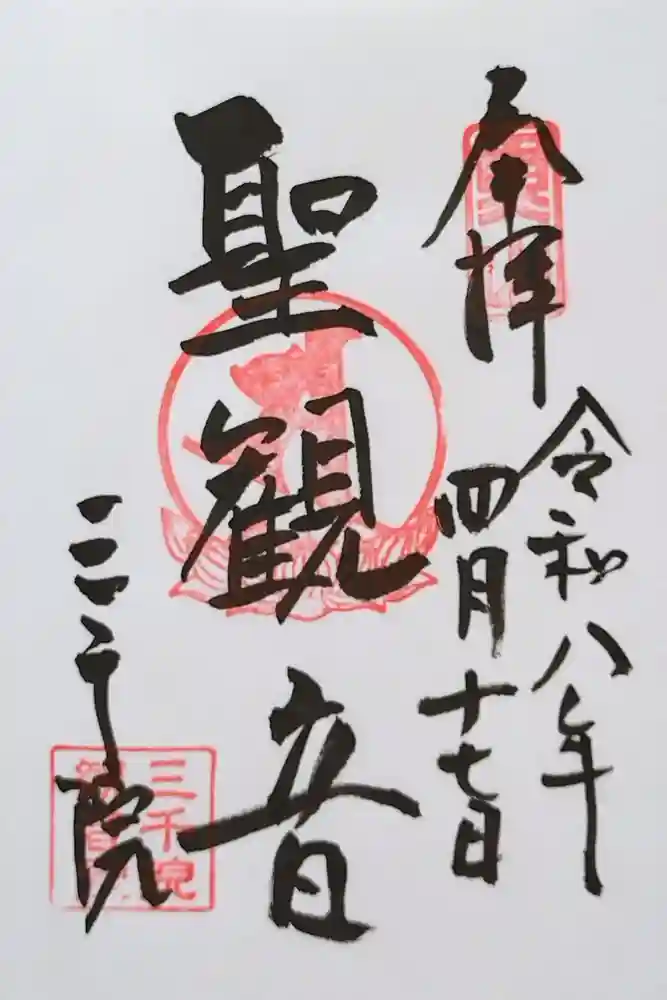 奉拝
令和八年
四月十七日
聖観音
三千院
三千院